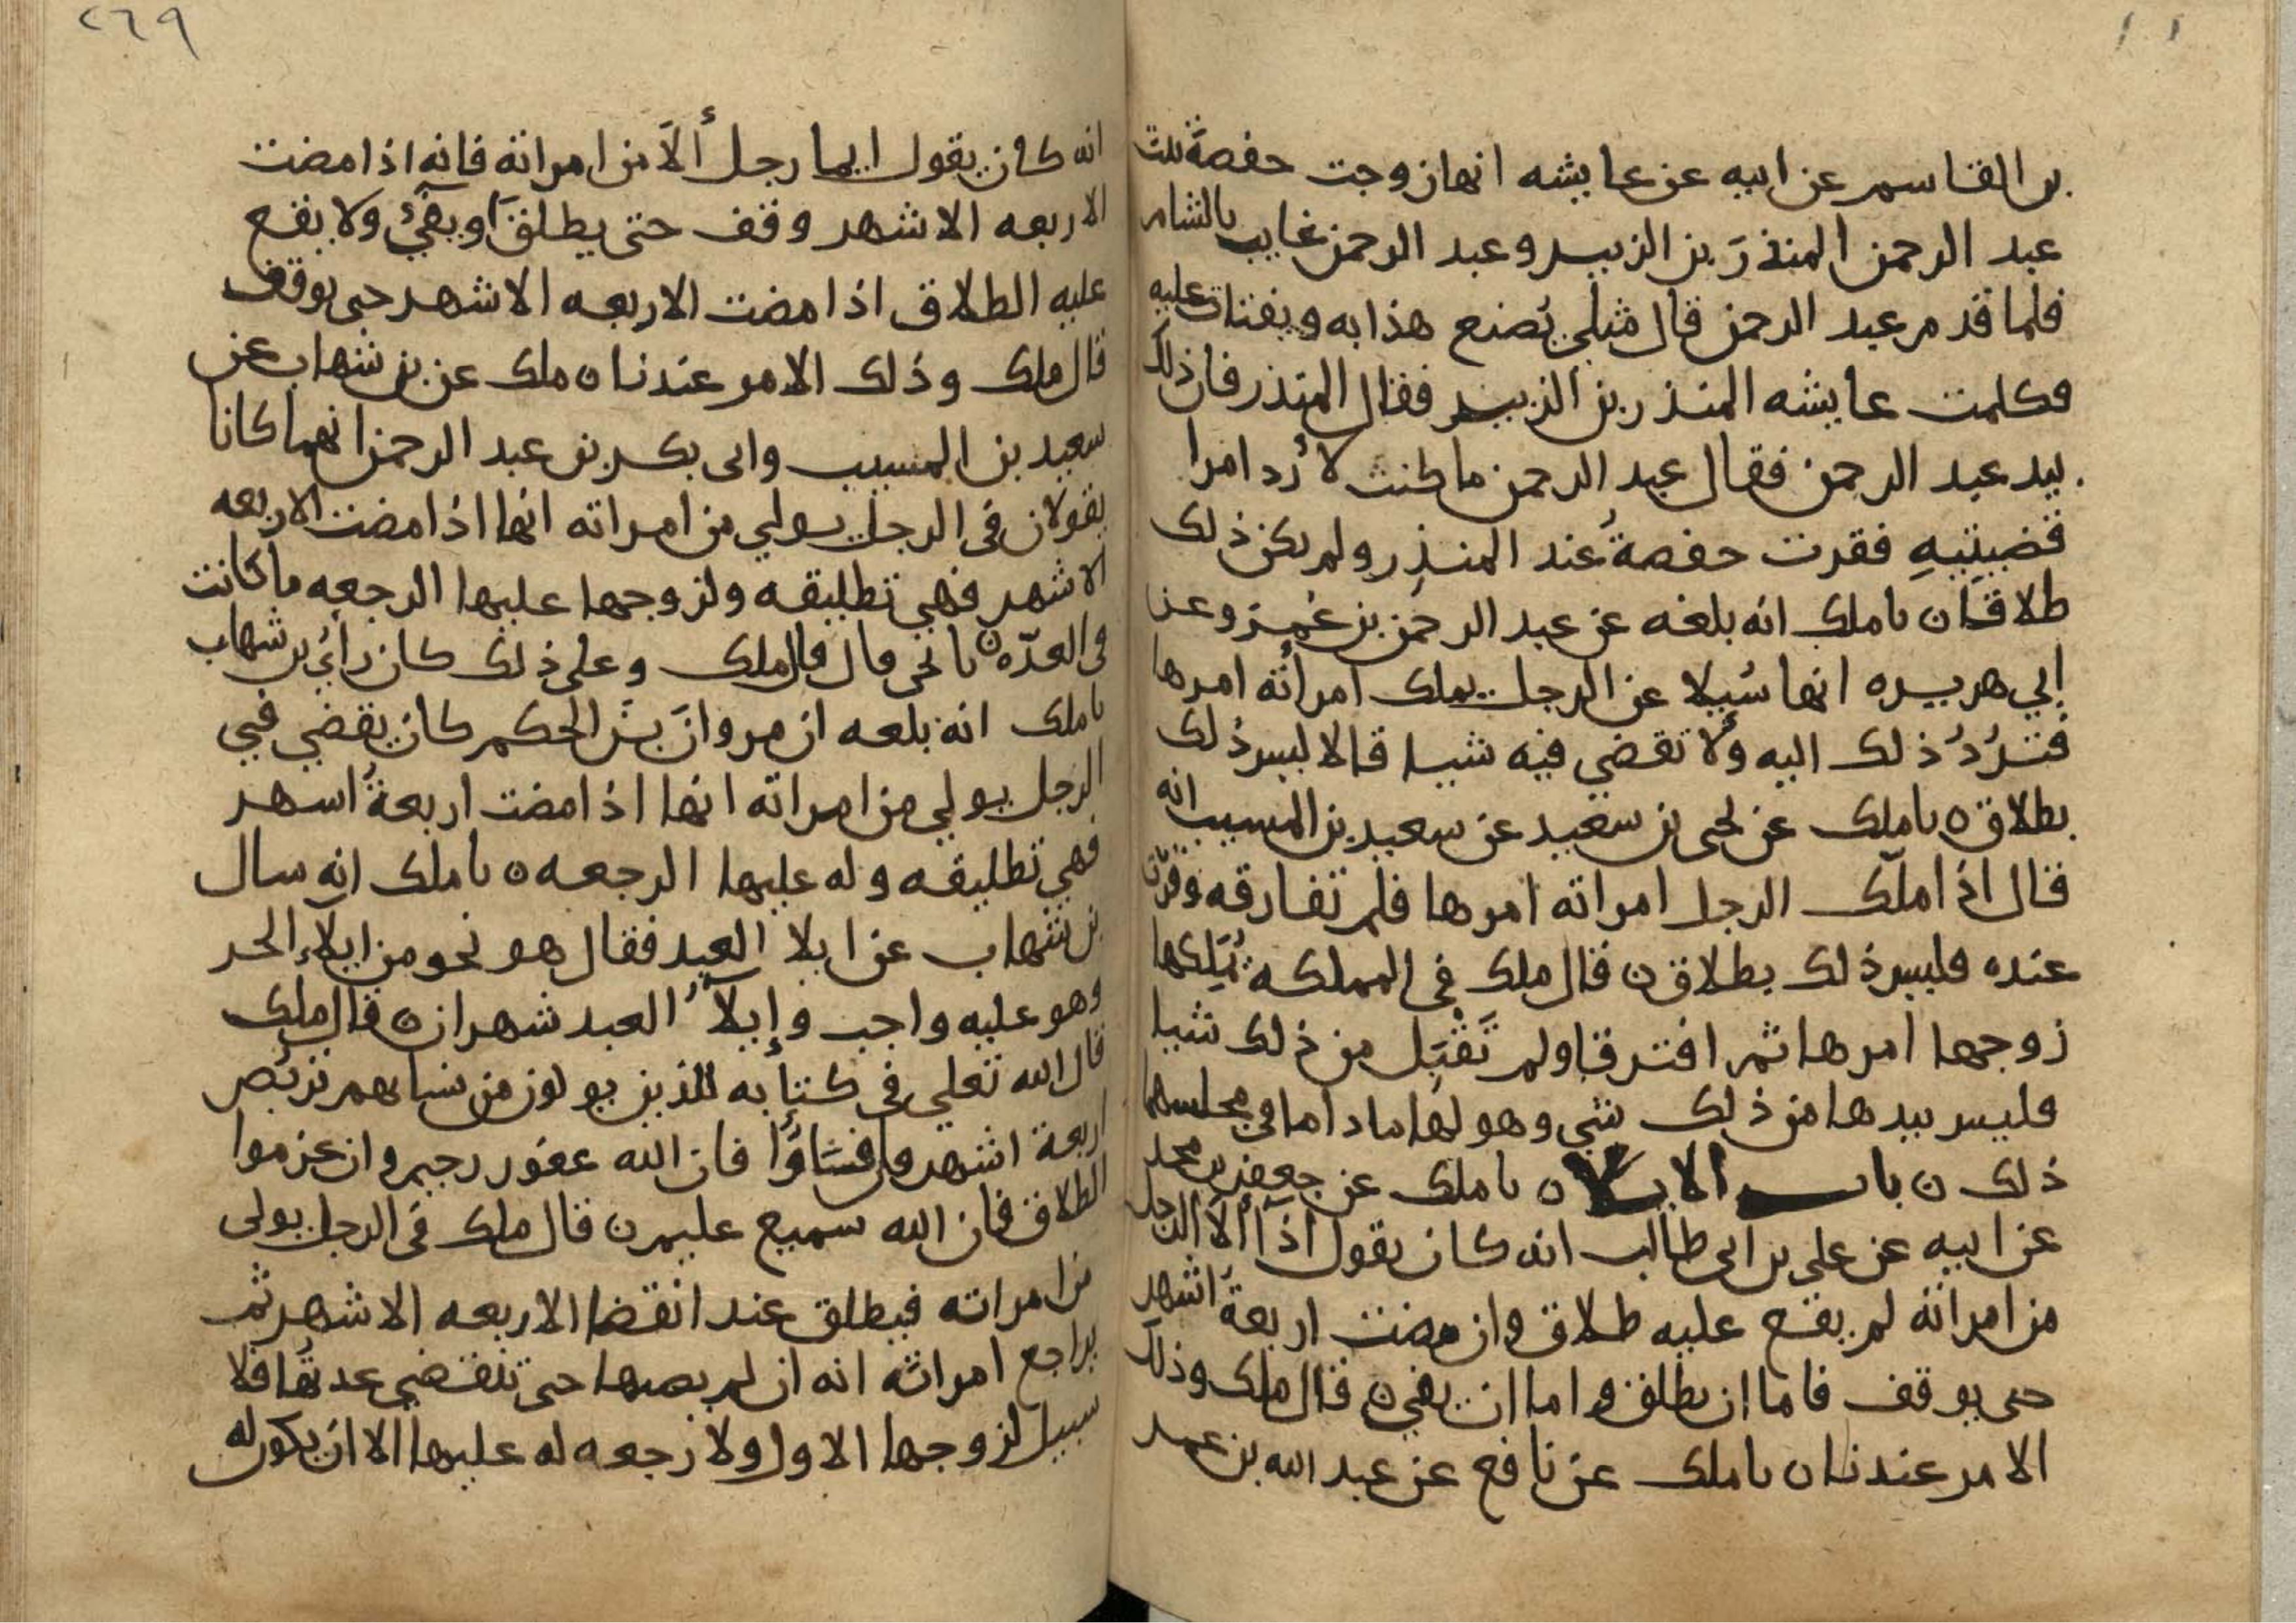 بن القاسم عن ابيه عن عايشه انها زوجت حفصة بنت
عبد الرحمن المنذر بن الزبير وعبد الرحمن غايب بالشام
فلما قدم عبد الرحمن قال مثلي يُصنع هذا به ويفتات عليه
فكلمت عايشه المنذر بن الزبير فقال المنذر فان ذلك
بيد عبد الرحمن فقال عبد الرحمن ما كنت لا رُد امرا
قضيتيهِ فقرت حفصةُ عند المنذِر ولم يكن ذلك
طلاقا ن نا ملك انه بلغه عن عبد الرحمن بن عُمر وعن
ابي هريره انهما سُيلا عن الرجل يملك امرأته امرها
فترُدُ ذلك اليه ولا تقضي فيه شيا قالا ليس ذلك
بطلاق ه نا ملك عن يحى بن سعيد عن سعيد بن المسيب انه
قال اذا ملّك الرجل امراته امرها فلم تفارقه وقرّت
عنده فليس ذلك بطلاق ن قال ملك في المملكه يُمَلِكها
زوجها امرها ثم افترقا ولم تَقْبَل من ذلك شيا
فليس بيدها من ذلك شي وهو لها ما داما في مجلسهما
ذلك ن باب الايلا ن نا ملك عن جعفر بن محمد
عن ابيه عن علي بن ابى طالب انه كان يقول اذا ألآ الرجل
من امراته لم يقع عليه طلاق وان مضت اربعةُ اشهر
حتى يوقف فاما ان يطلق واما ان يفي ن قال ملك وذلك
الامر عندنا ن نا ملك عن نافع عن عبد الله بن عمر
٢٦٩
انه كان يقول ايما رجل ألآ من امراته فانه اذا مضت
الاربعه الاشهر وقف حتى يطلقَ او يفيُ ولا يقع
عليه الطلاق اذا مضت الاربعه الاشهر حتى يوقف
قال ملك وذلك الامر عندنا ن ملك عن بن شهاب عن
سعيد بن المسيب وابى بكر بن عبد الرحمن انهما كانا
يقولان في الرجل يولي من امراته انها اذا مضت الاربعه
الاشهر فهي تطليقه ولزوجها عليها الرجعه ما كانت
فى العدّه ن نا يحى قال قال ملك وعلى ذلك كان رأيُ بن شهاب
نا ملك انه بلغه ان مروانَ بنَ الحكم كان يقضي في
الرجل يولي من امراته انها اذا مضت اربعةُ اشهر
فهي تطليقه وله عليها الرجعه ن نا ملك انه سال
بن شهاب عن ايلا العبد فقال هو نحو من ايلاء الحر
وهو عليه واجب وإيلآُ العبد شهران ن قال ملك
قال الله تعلي في كتابه للذين يولون من نسايهم تربُص
اربعة اشهر فان فآوا فان الله غفور رحيم وان عزموا
الطلاق فان الله سميع عليم ن قال ملك في الرجل يولى
من امراته فيطلق عند انقضا الاربعه الاشهر ثم
يراجع امراته انه ان لم يصبها حتى تنقضي عدتُها فلا
سبيل لزوجها الاول ولا رجعه له عليها الا ان يكون له